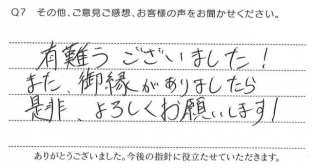 Q7 その他、ご意見ご感想、お客様の声をお聞かせください。
有難うございました!
また、御縁がありましたら
是非、よろしくお願いします!
ありがとうございました。今後の指針に役立たせていただきます。